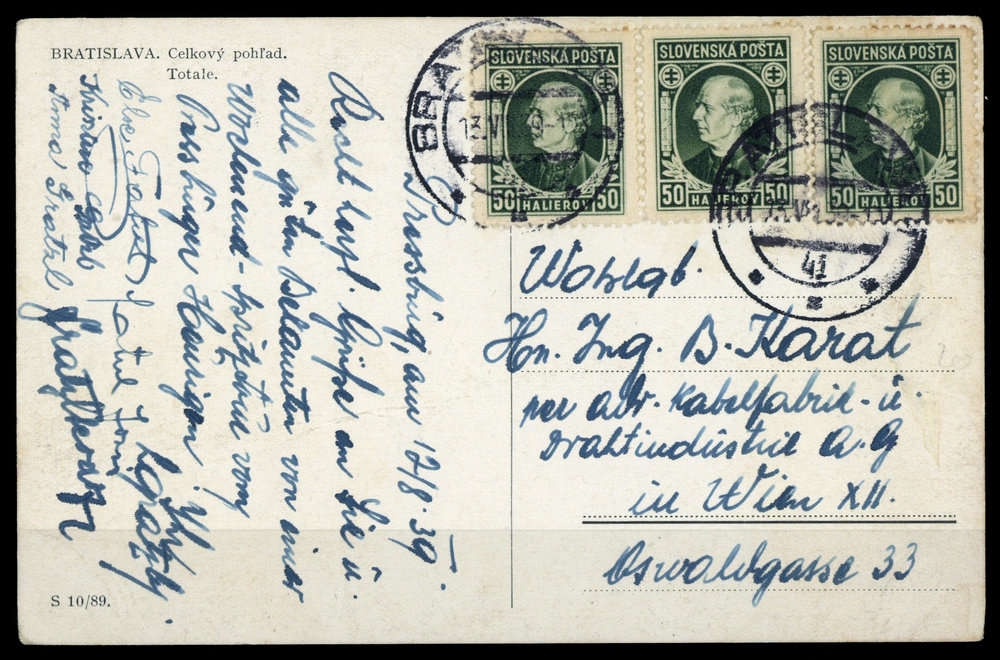 BRATISLAVA. Celkový pohľad.
Totale.
Pressburg, am 12/8. 39.
Recht herzl. Grüße an Sie u.
alle guten Bekannten von einer
Wochenend-Spritztour vom
Pressburger Heurigen. Ihr
S 10/89.
SLOVENSKÁ POŠTA
50 HALIEROV 50
SLOVENSKÁ POŠTA
50 HALIEROV 50
SLOVENSKÁ POŠTA
50 HALIEROV 50
41
Hn. Ing. B. Karat
per adr. Kabelfabrik- u.
Drahtindustrie A.G
in Wien XII.
Oswaldgasse 33